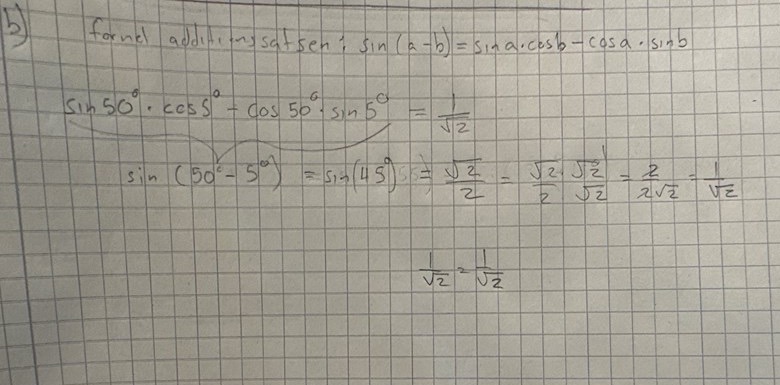 b) formel additionssatsen: sin(a-b)=sina·cosb-cosa·sinb
sin50°·cos5°-cos50°·sin5° = 1/√2
sin(50°-5°) = sin(45°) = √2/2 = √2/2·√2/√2 = 2/2√2 = 1/√2
1/√2 = 1/√2